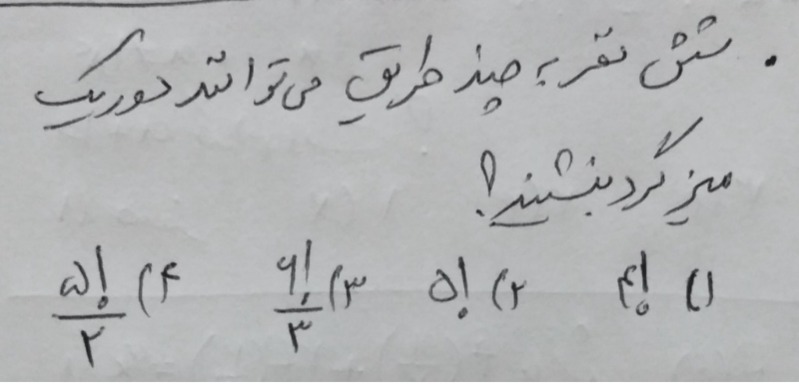 . شش نفر به چند طریق می‌توانند دور یک
میز گرد بنشینند؟
۱) ۴! ۲) ۵! ۳) ۶!/۳ ۴) ۵!/۲